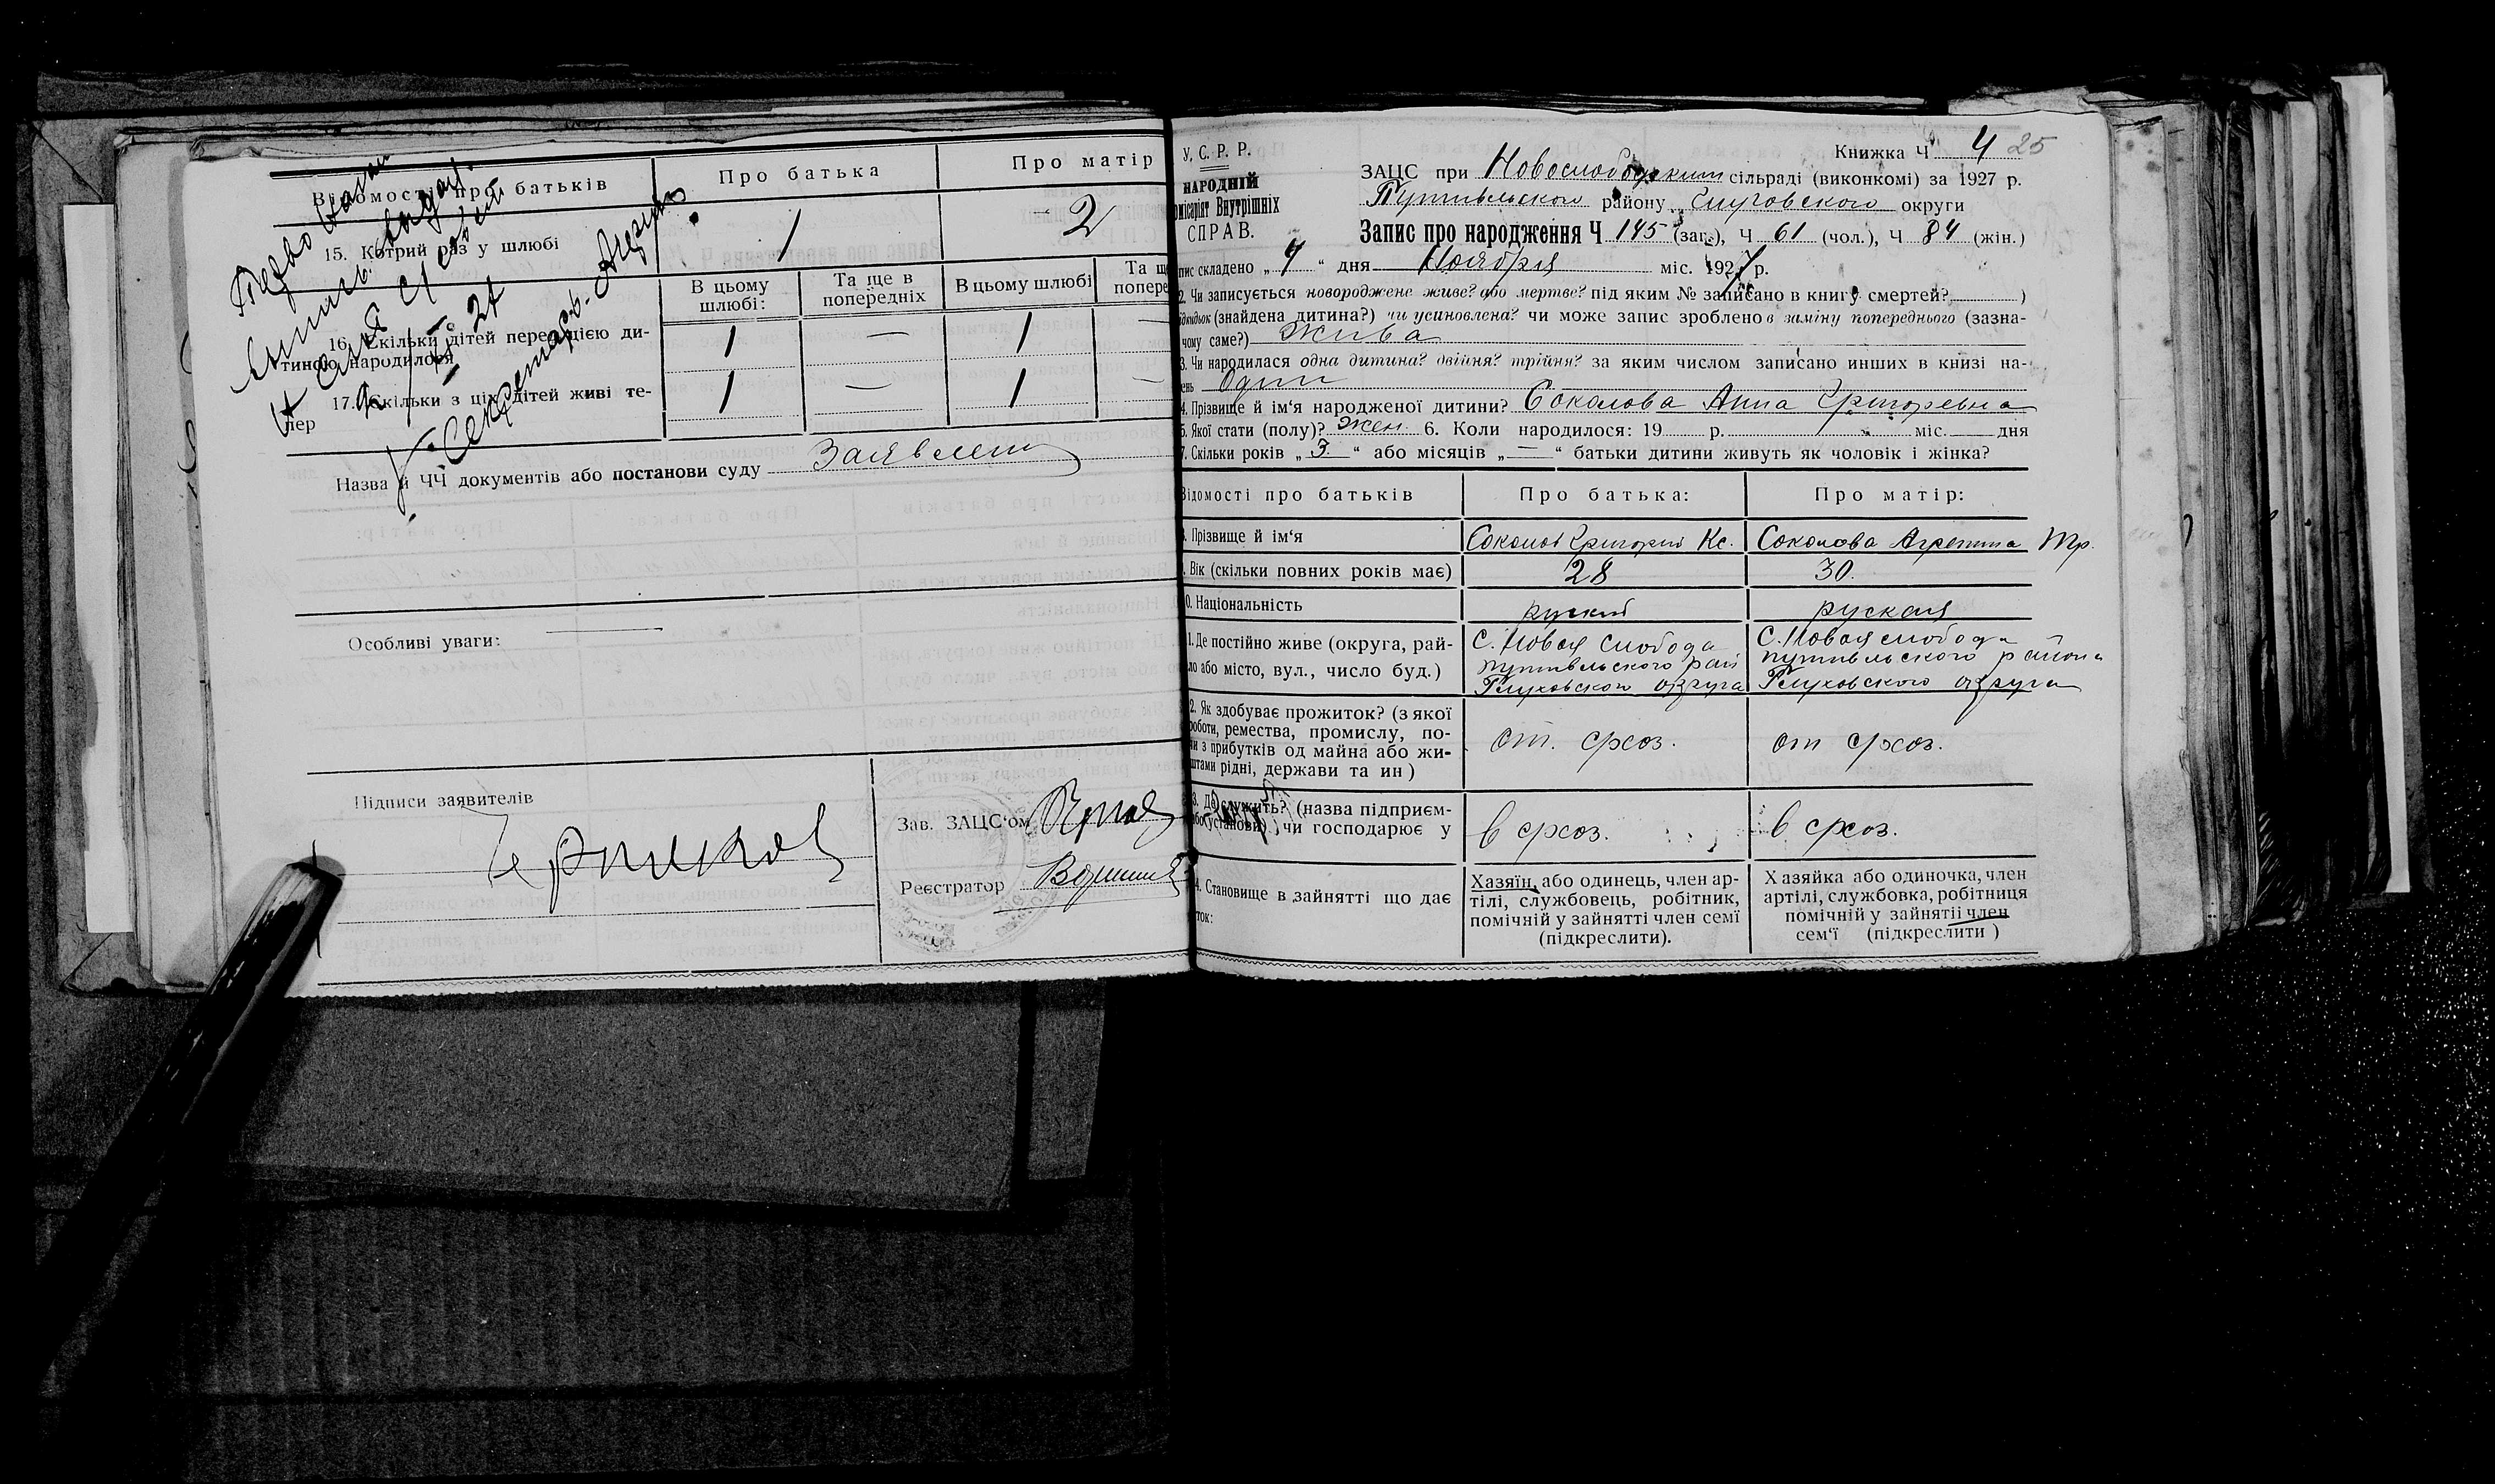 Відомості про батьків
Про батька
Про матір
15. Котрий раз у шлюбі
1
2
В цьому шлюбі:
Та ще в попередніх
В цьому шлюбі
Та ще
попере
16. Скільки дітей перед цією ди-
тиною народилося
1 — 1 —
17. Скільки з ціх дітей живі те-
пер
1 — 1 —
Назва й ЧЧ документів або постанови суду Заявлени
Особливі уваги:
Підписи заявителів
Зав. ЗАЦС'ом
Реєстратор
У. С. Р. Р.
НАРОДНІЙ
омісаріят Внутрішніх
СПРАВ.
Книжка Ч 4 25
ЗАЦС при Новослободским сільраді (виконкомі) за 1927 р.
Путивльского району округи
Запис про народження Ч 145 (заг.), Ч 61 (чол.), Ч 84 (жін.)
пис складено „ 4 “ дня Ноября міс. 1927 р.
2. Чи записується новороджене живе? або мертве? під яким № записано в книгу смертей? )
(знайдена дитина?) чи усиновлена? чи може запис зроблено в заміну попереднього (зазна-
чому саме?) Жива
3. Чи народилася одна дитина? двійня? трійня? за яким числом записано инших в книзі на-
ень Один
4. Прізвище й ім'я народженої дитини? Соколова Анна Григоревна
5. Якої стати (полу)? жен. 6. Коли народилося: 19 р. міс. — дня
7. Скільки років „ 3 “ або місяців „ — “ батьки дитини живуть як чоловік і жінка?
Відомості про батьків
Про батька:
Про матір:
Прізвище й ім'я
Соколов Григорий Кс.
Соколова Агрепина Тр.
. Вік (скільки повних років має)
28
30.
0. Національність
руский
руская
1. Де постійно живе (округа, рай-
ло або місто, вул., число буд.)
С. Новая Слобода
путивльского рай
Глуховского округа
С. Новая слобода
путивльского района
Глуховского округа
2. Як здобуває прожиток? (з якої
роботи, ремества, промислу, по-
чи з прибутків од майна або жи-
штами рідні, держави та ин)
от. срхоз.
от срхоз.
3. Де служить? (назва підприєм-
або установи) чи господарює у
в срхоз.
в срхоз.
4. Становище в зайнятті що дає
ток:
Хазяїн, або одинець, член ар-
тілі, службовець, робітник,
помічній у зайнятті член семї
(підкреслити).
Хазяйка або одиночка, член
артілі, службовка, робітниця
помічній у зайнятіі член
сем'ї (підкреслити )